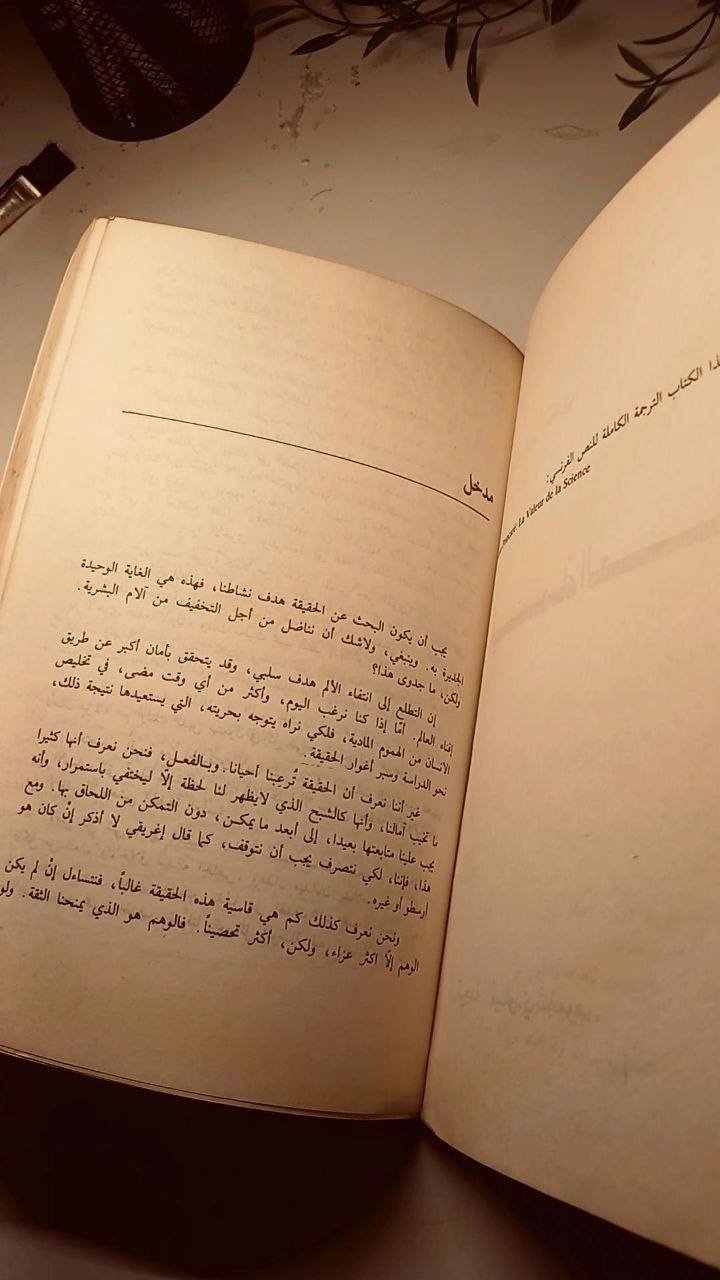 هذا الكتاب الترجمة الكاملة للنص الفرنسي:
Poincaré La Valeur de la Science
مدخل
يجب أن يكون البحث عن الحقيقة هدف نشاطنا، فهذه هي الغاية الوحيدة
الجديرة به. وينبغي، ولاشك أن نناضل من أجل التخفيف من آلام البشرية.
ولكن، ما جدوى هذا؟
إن التطلع إلى انتفاء الألم هدف سلبي، وقد يتحقق بأمان أكبر عن طريق
إفناء العالم. أمّا إذا كنا نرغب اليوم، وأكثر من أي وقت مضى، في تخليص
الانسان من الهموم المادية، فلكي نراه يتوجه بحريته، التي يستعيدها نتيجة ذلك،
نحو الدراسة وسبر أغوار الحقيقة.
غير أننا نعرف أن الحقيقة تُرعِبنا أحيانا. وبالفعل، فنحن نعرف أنها كثيرا
ما تخيب آمالنا، وأنها كالشبح الذي لايظهر لنا لحظة إلّا ليختفي باستمرار، وأنه
يجب علينا متابعتها بعيدا، إلى أبعد ما يمكن، دون التمكن من اللحاق بها. ومع
هذا، فإننا، لكي نتصرف يجب أن نتوقف، كما قال إغريقي لا أذكر إنْ كان هو
أرسطو أو غيره.
ونحن نعرف كذلك كم هي قاسية هذه الحقيقة غالباً، فنتساءل إنْ لم يكن
الوهم إلّا اكثر عزاء، ولكن، أكثر تحصيناً. فالوهم هو الذي يمنحنا الثقة. ولو